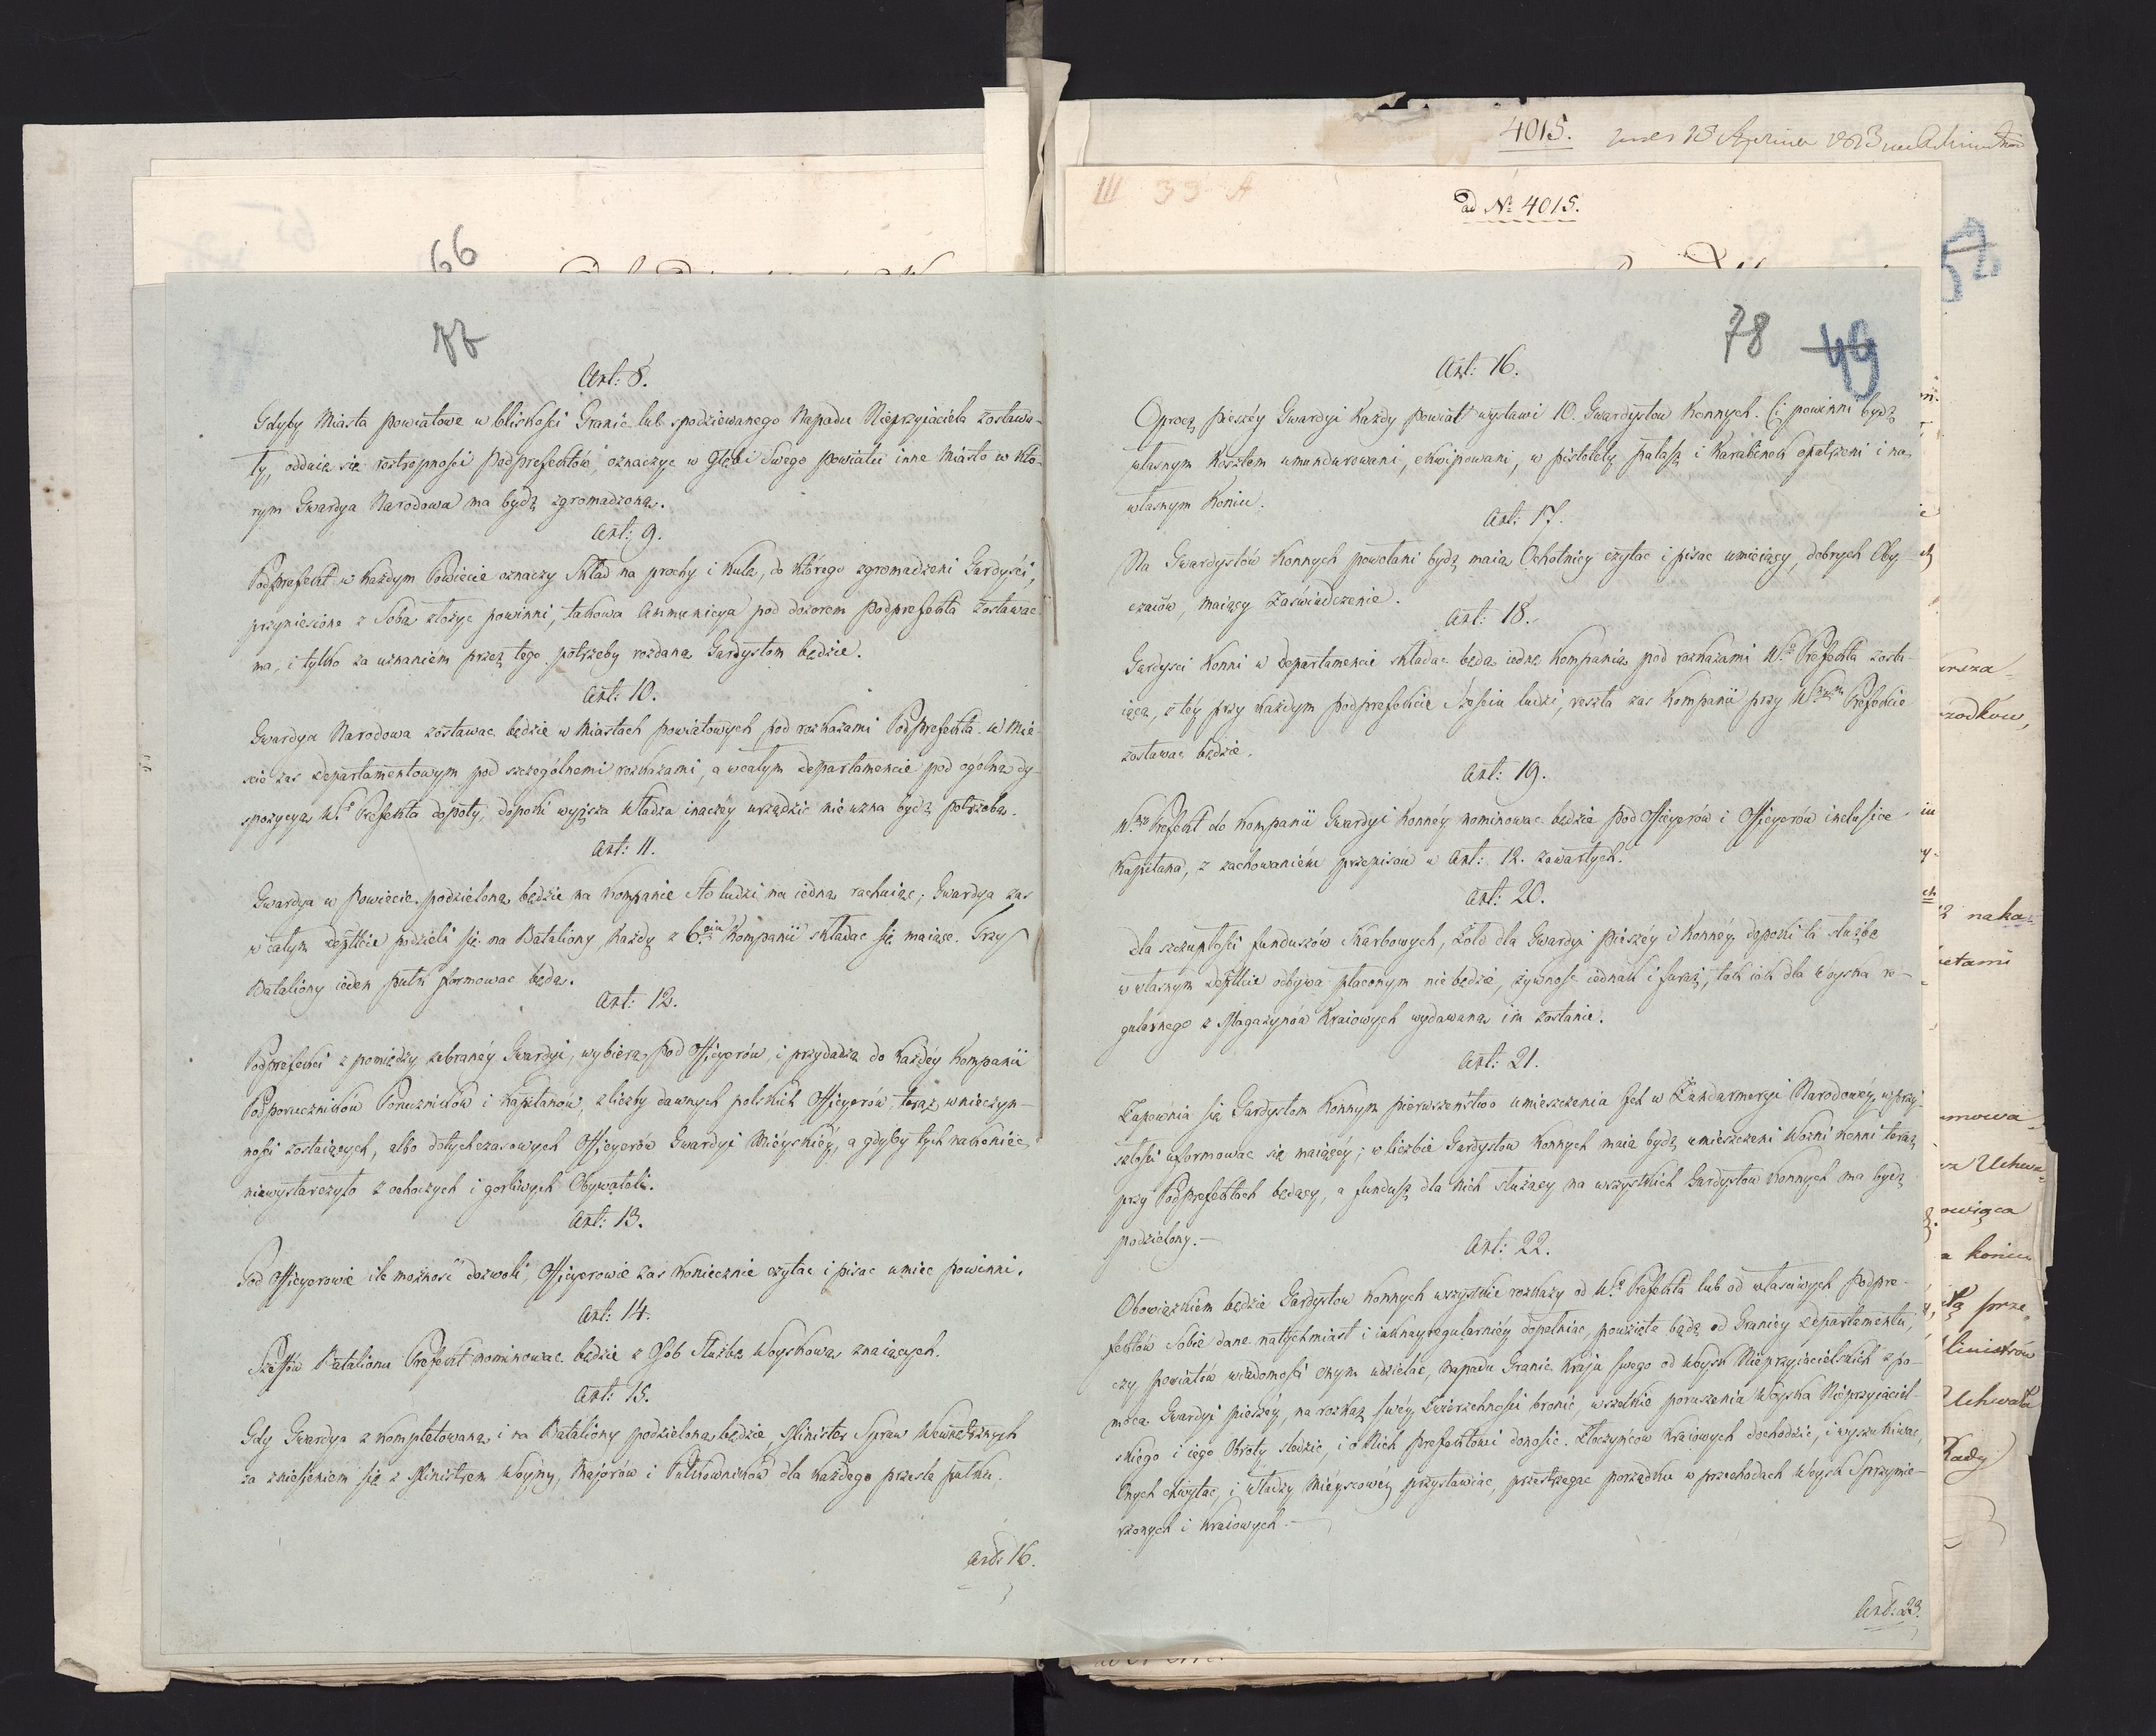 4015.
III 39 A
ad N: 4015.
66
77
Art: 8.
Gdyby Miasta powiatowe w bliskości Granic lub spodziewanego Napadu Nieprzyiaciela zostawa-
ły, oddaie się roztropności Podprefektów, oznaczyc w Głębi Swego Powiatu inne Miasto w któ-
rym Gwardya Narodowa ma bydź zgromadzoną.
Art: 9.
Podprefekt w każdym Powiecie oznaczy Skład na prochy i kule, do którego zgromadzeni Gardyści,
przyniesione z Sobą złożyc powinni, takowa Ammunicya pod dozorem Podprefekta zostawac
ma, i tylko za uznaniém przez tego potrzeby rozdaną Gardystom będzie.
Art: 10.
Gwardya Narodowa zostawac będzie w Miastach powiatowych pod rozkazami Podprefekta w Mie-
scie zas Departamentowym pod szczególnemi rozkazami, a w całym Departamencie pod ogólną dy-
spozycyą W.º Prefekta dopóty, dopóki wyższa Władza inaczéy urządzic nie uzna bydź potrzebą.
Art: 11.
Gwardya w Powiecie podzieloną będzie na Kompanie sto ludzi na iedną rachuiąc; Gwardya zas
w całym Deptłcie podzieli się na Bataliony, każdy z 6.ciu Kompanii składac się maiące. Trzy
Bataliony ieden pułk formowac będą.
Art: 12.
Podprefekci z pomiędzy zebranéy Gwardyi, wybiorą Pod Officyerów, i przydadzą do każdéy Kompanii
Podporuczników Poruczników i Kapitanów, z liczby dawnych polskich Officyerów, teraz w nieczyn-
ności zostaiących, albo dotychczasowych Officyerów Gwardyi Mieyskiéy, a gdyby tych nakoniec
niewystarczyło z ochoczych i gorliwych Obywateli.
Art: 13.
Pod Officyerowie ile możność dozwoli, Officyerowie zas koniecznie czytac i pisac umiec powinni.
Art: 14.
Szeffów Batalionu Prefekt nominowac będzie z Osob Służbę Woyskową znaiących.
Art: 15.
Gdy Gwardya zkompletowaną i na Bataliony podzieloną będzie, Minister Spraw Wewnętrznych
za zniesieniem się z Ministrem Woyny, Majorów i Pułkowników dla każdego przesle pułku.
Art: 16.
78 49
Art: 16.
Oprocz pieszéy Gwardyi każdy powiat wystawi 10. Gwardystow Konnych. Ci powinni bydź
własnym kosztem umundurowani, ekwipowani, w pistolety, pałasz i Karabinek opatrzeni i na
własnym koniu.
Art: 17.
Na Gwardystów Konnych powołani bydź maią Ochotnicy czytac i pisac umieiący, dobrych Oby-
czaiów, maiący zaświadczenie.
Art: 18.
Gardysci konni w Departamencie składac będą iedną Kompanią pod rozkazami W.º Prefekta zosta-
iącą, z téy przy każdym podprefekcie sześciu ludzi, reszta zas Kompanii przy Prefekcie
zostawac będzie.
Art: 19.
W. Prefekt do Kompanii Gwardyi Konnéy nominowac będzie Pod Officyerów i Officyerów inclusive
Kapitana, z zachowaniém przepisów w Art: 12. zawartych.
Art: 20.
Dla szczupłości funduszów Skarbowych, żołd dla Gwardyi pieszéy i Konnéy dopoki ta służbę
w własnym Deptłcie odbywa płaconym nie będzie, żywność iednak i furaż, tak iak dla Woyska re-
gularnego z Magazynów Kraiowych wydawaną im zostanie.
Art: 21.
Zapewnia się Gardystom Konnym pierwszeństwo umieszczenia Ich w Żandarmeryi Narodowéy w przy-
szłości uformowac się maiącéy; w liczbie Gardystow Konnych maią bydź umieszczeni Wozni konni teraz
przy Podprefektach będący, a fundusz dla Nich służący na wszystkich Gardystow Konnych ma bydź
podzielony.—
Art: 22.
Obowiązkiem będzie Gardystow Konnych wszystkie rozkazy od W.º Prefekta lub od własciwych Podpre-
fektów Sobie dane natychmiast i iaknayregularniéy dopełniac, powzięte bądź od Granicy Departamentu,
czy powiatów wiadomości onym udzielac, napadu Granic Kraju swego od Woysk Nieprzyiacielskich z po-
mocą Gwardyi pieszéy, na rozkaz swéy Zwierzchności bronic, wszelkie poruszenia Woyska Nieprzyiaciel-
skiego i iego Obroty śledzic, i o Nich Prefektowi donosic. Złoczyńców Kraiowych dochodzic, i wyszukiwac,
Onych chwytac, i Władzy Mieyscowéy przystawiac, przestrzegac porządku w przechodach Woysk Sprzymie-
rzonych i kraiowych.—
Art: 23.